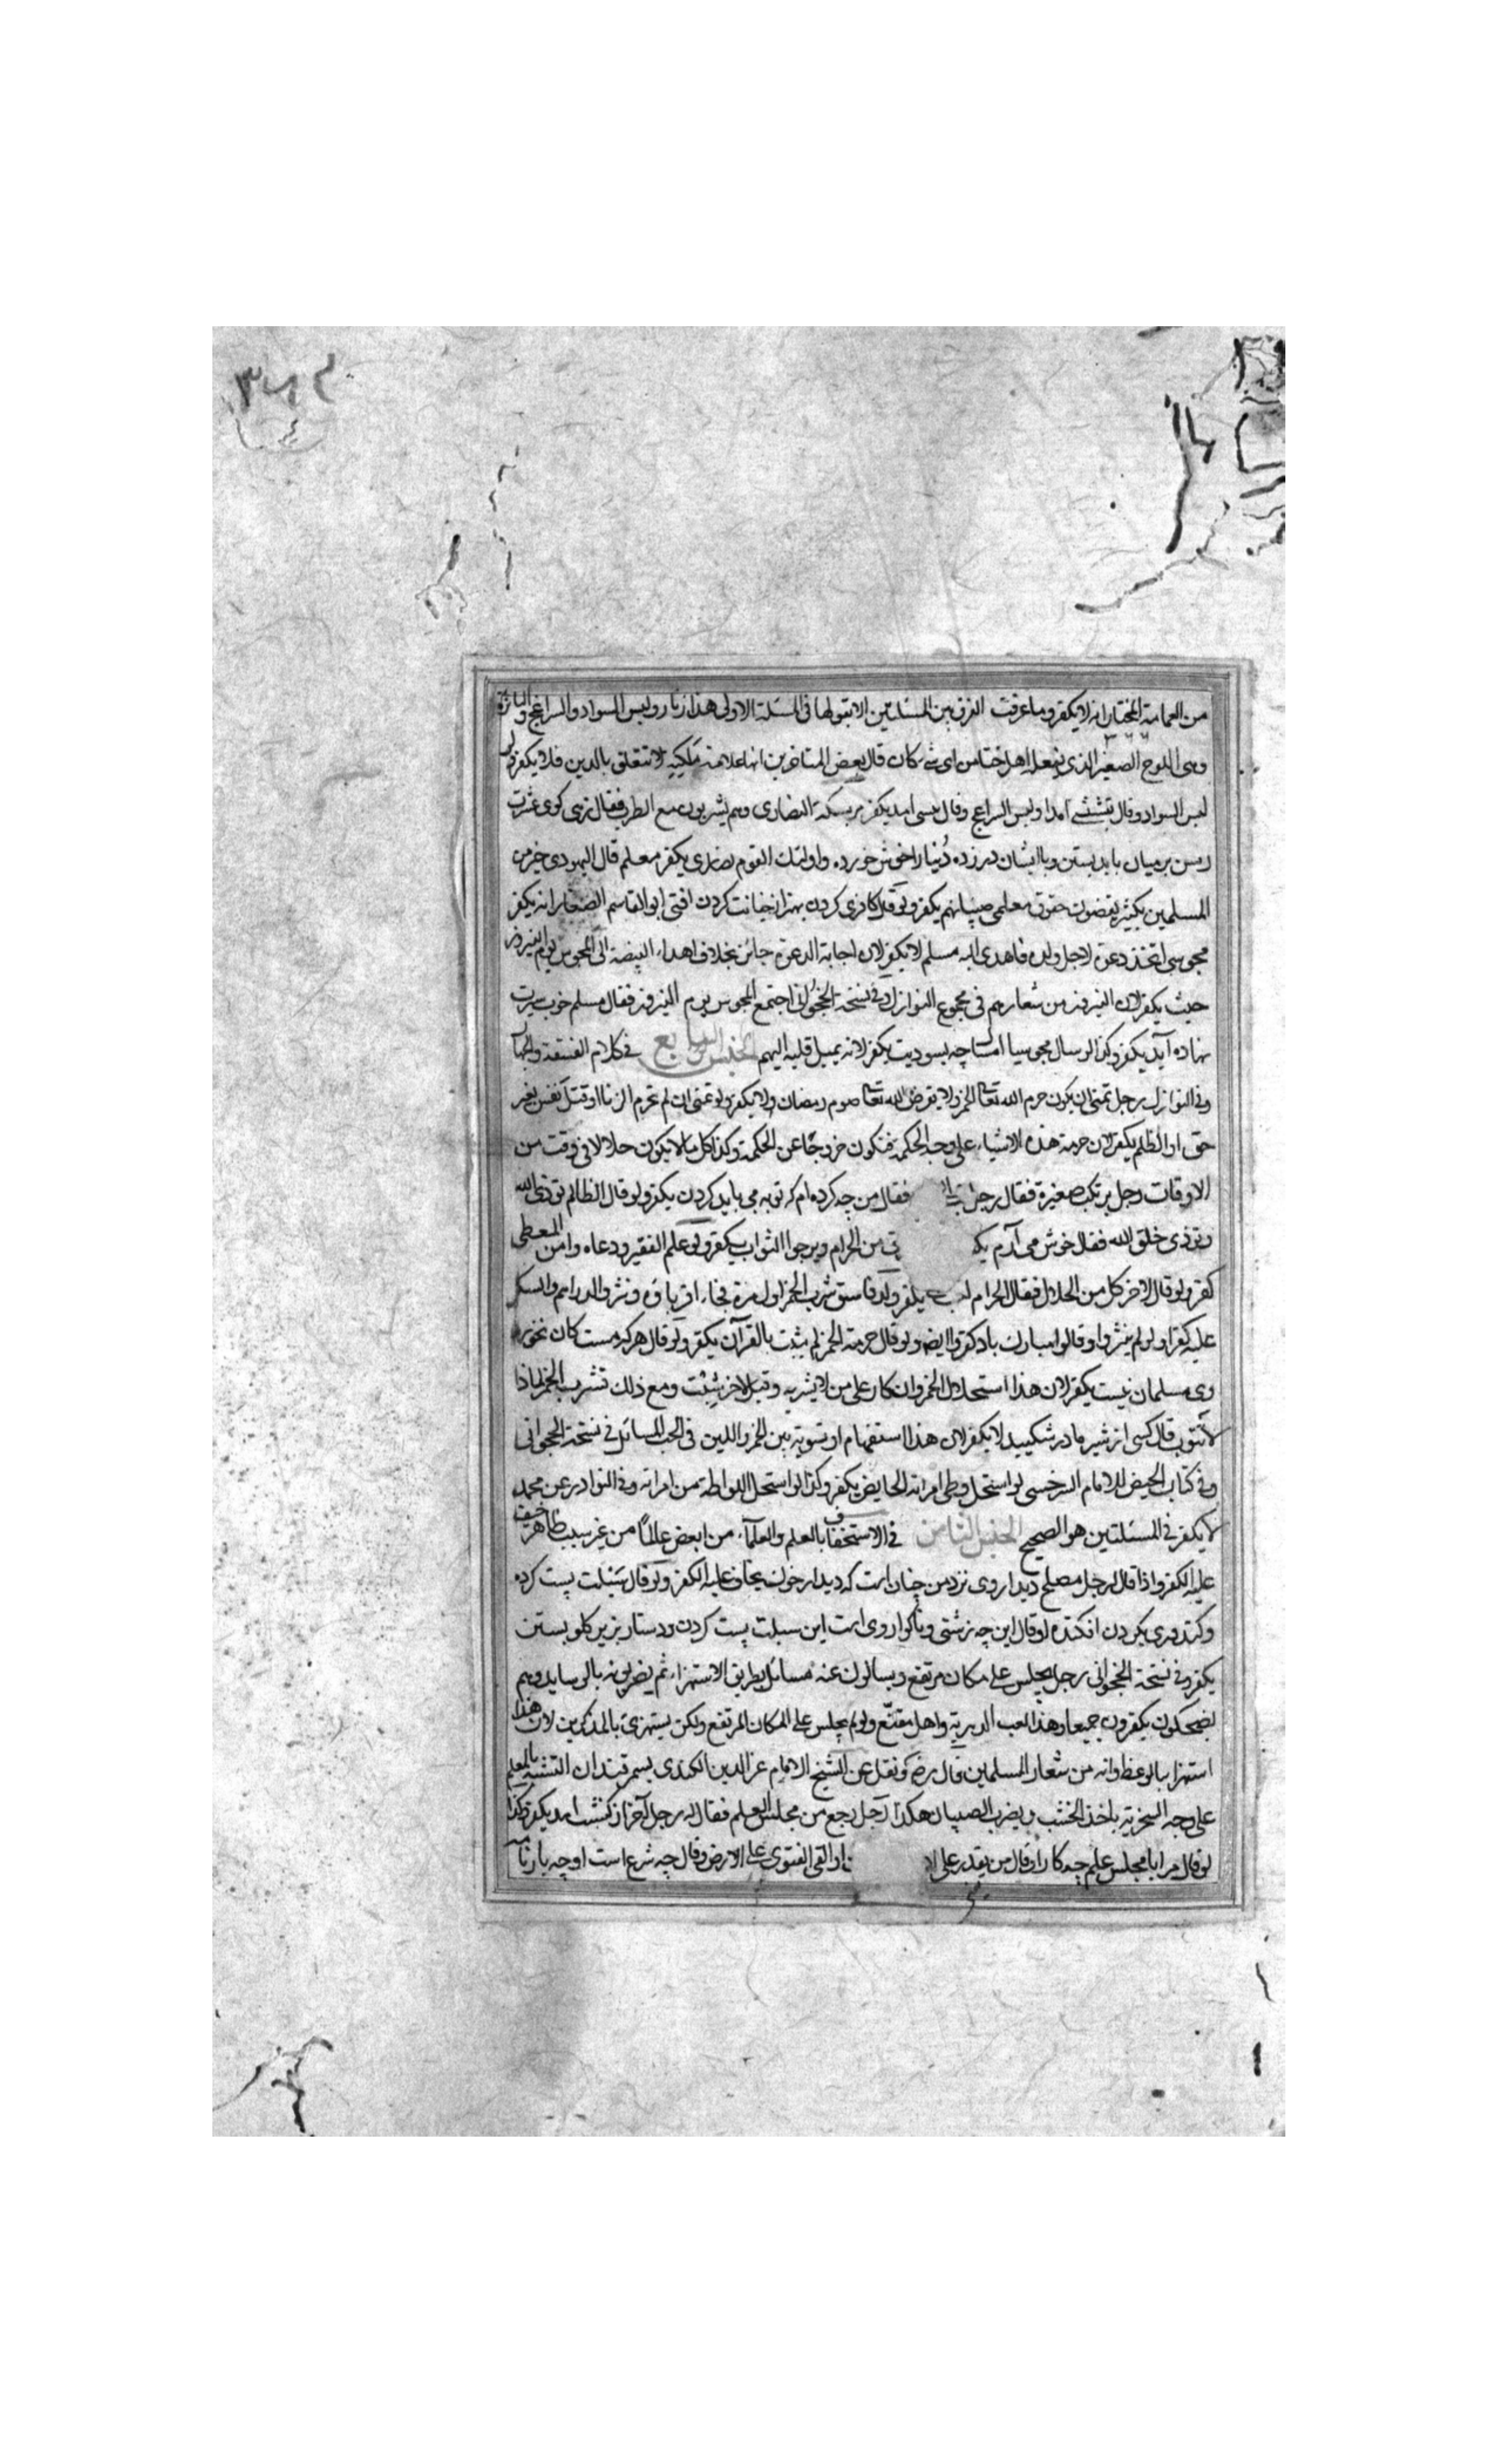 ٣٦٢
من العمامة المختار انه لا يكفر وما عرفت الفرق بين المسئلتين الا بقولها فى المسئلة الاولى هذا زنار ولبس السواد والسراغج و
وهى اللوح الصغير الذى يفعل اهل ختا من اى شئ كان قال بعض المتاخرين انها علامة ملكيه لا تتعلق بالدين فلا يكفر ولو
لبس السواد وقال امدا ولبس السراغج وقال امد يكفر مر بسكة النصارى وهم يشربون مع الطرب فقال زهى كوى عشرت
رسن بر ميان بايد بستن وبا ايشان در زده دنيا را خوش خورده واولئك القوم نصارى يكفر معلم قال اليهودى خير من
المسلمين بكثير يقضون حقوق معلمى صبيانهم يكفر ولو قال كافرى كردن بهتر از خيانت كردن افتى ابو القاسم الصفار انه يكفر
مجوسى اتخذ دعوة لاجل ولده فاهدى اليه مسلم لا يكفر لان اجابة الدعوة جائز بخلاف اهداء البيضة الى المجوس يوم النيروز
حيث يكفر لان النيروز من شعارهم فى مجموع النوازل وفى نسخة الخجوانى اجتمع المجوس يوم النيروز فقال مسلم خوب سيرت
نهاده آيد يكفر وكذا لو سال مجوسيا يكفر لانه يميل قلبه اليهم الجنس السابع فى كلام الفسقة والجهال
وفى النوازل رجل تمنى ان يكون حرم الله تعالى الخمر ولا يفرض الله تعالى صوم رمضان ولا يكفر ولو تمنى ان لم تحرم الزنا او قتل نفس بغير
حق او الظلم يكفر لان حرمة هذه الاشياء على وجه الحكمة فتكون خروجا عن الحكمة وكذا كل ما لا يكون حلالا فى وقت من
الاوقات رجل يرتكب صغيرة فقال رجل فقال من چه كرده ام كه توبه مى بايد كردن يكفر ولو قال الظالم توذى الله
وتوذى خلق الله فقال خوش مى آرم من الحرام ويرجوا الثواب يكفر ولو علم الفقير ودعاه وامن المعطى
كفر ولو قال لاخر كل من الحلال فقال الحرام احب يكفر ولد فاسق شرب الخمر اول مرة فجاء اقرباؤه ونثروا الدراهم والسكر
عليه كفرا ولو لم ينثروا وقالوا مبارك باد كفروا ايضا ولو قال حرمة الخمر لم يثبت بالقرآن يكفر ولو قال هر كه مست كان نخورد
وى مسلمان نيست يكفر لان هذا استحلال الخمر وانكار على من لا يشربه وقيل لاخر ومع ذلك تشرب الخمر لماذا
لا تتوب قال كسى از شير مادر شكيبد لا يكفر لان هذا استفهام او تسوية بين الخمر واللبن فى الحب المسائل فى نسخة الخجوانى
وفى كتاب الحيض للامام السرخسى لو استحل وطى امراته الحايض يكفر وكذا لو استحل اللواطة من امراته وفى النوادر عن محمد
لا يكفر فى المسئلتين هو الصحيح الجنس الثامن فى الاستخفاف بالعلم والعلماء من ابغض عالما من غير سبب ظاهر خيف
عليه الكفر واذا قال لرجل مصلح ديدار وى نزد من چنان است كه ديدار خوك يخاف عليه الكفر ولو قال سبلت پست كرده
بكردن افكنده او قال اين چه زشتى وناگوار وى است اين سبلت پست كردن ودستار بزير كلو بستن
يكفر وفى نسخة الخجوانى رجل يجلس على مكان مرتفع ويسالون عنه مسائل بطريق الاستهزاء ثم يضربونه بالوسايد وهم
يضحكون يكفرون جميعا وهذا ولو لم يجلس على المكان المرتفع ولكن يستهزئ بالمذكرين لان هذا
استهزا بالوعظ وانه من شعار المسلمين قال رضى ونقل عن الشيخ الامام عز الدين الكندى بسمرقند ان التشبه بالمعلم
على وجه السخرية ياخذ الخشب ويضرب الصبيان هكذا رجل يرجع من مجلس العلم فقال له رجل آخر از كنشت امد يكفر وكذا
لو قال مرا با مجلس علم چه كار او قال من يقدر على او القى الفتوى على الارض وقال چه شرع است او چه بار نامه